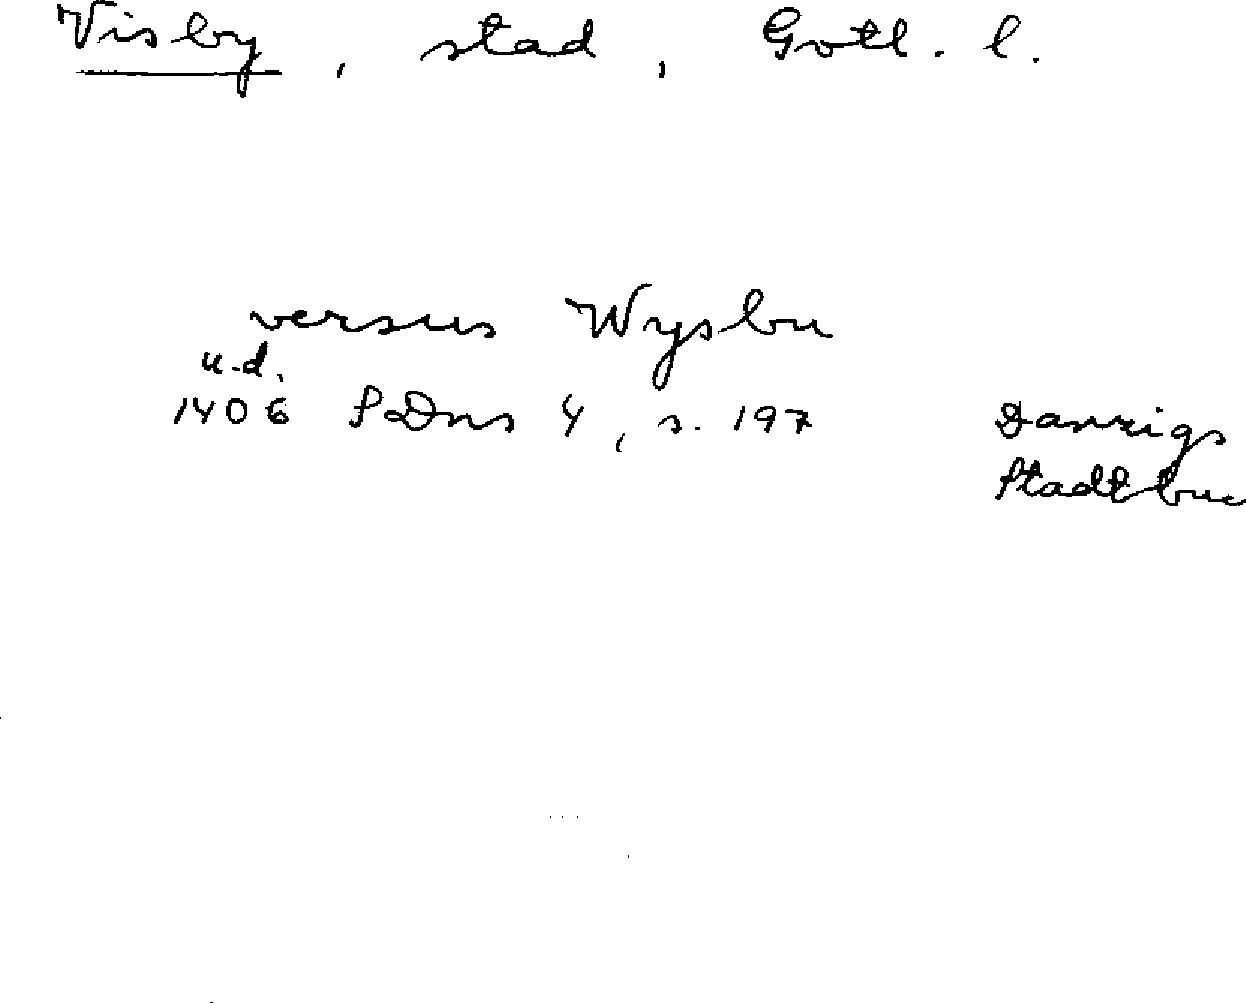 Visby, stad, Gotl. l.
versus Wysbu
u.d.
1406 SDns 4, s. 197 Danzigs
Stadtbuc